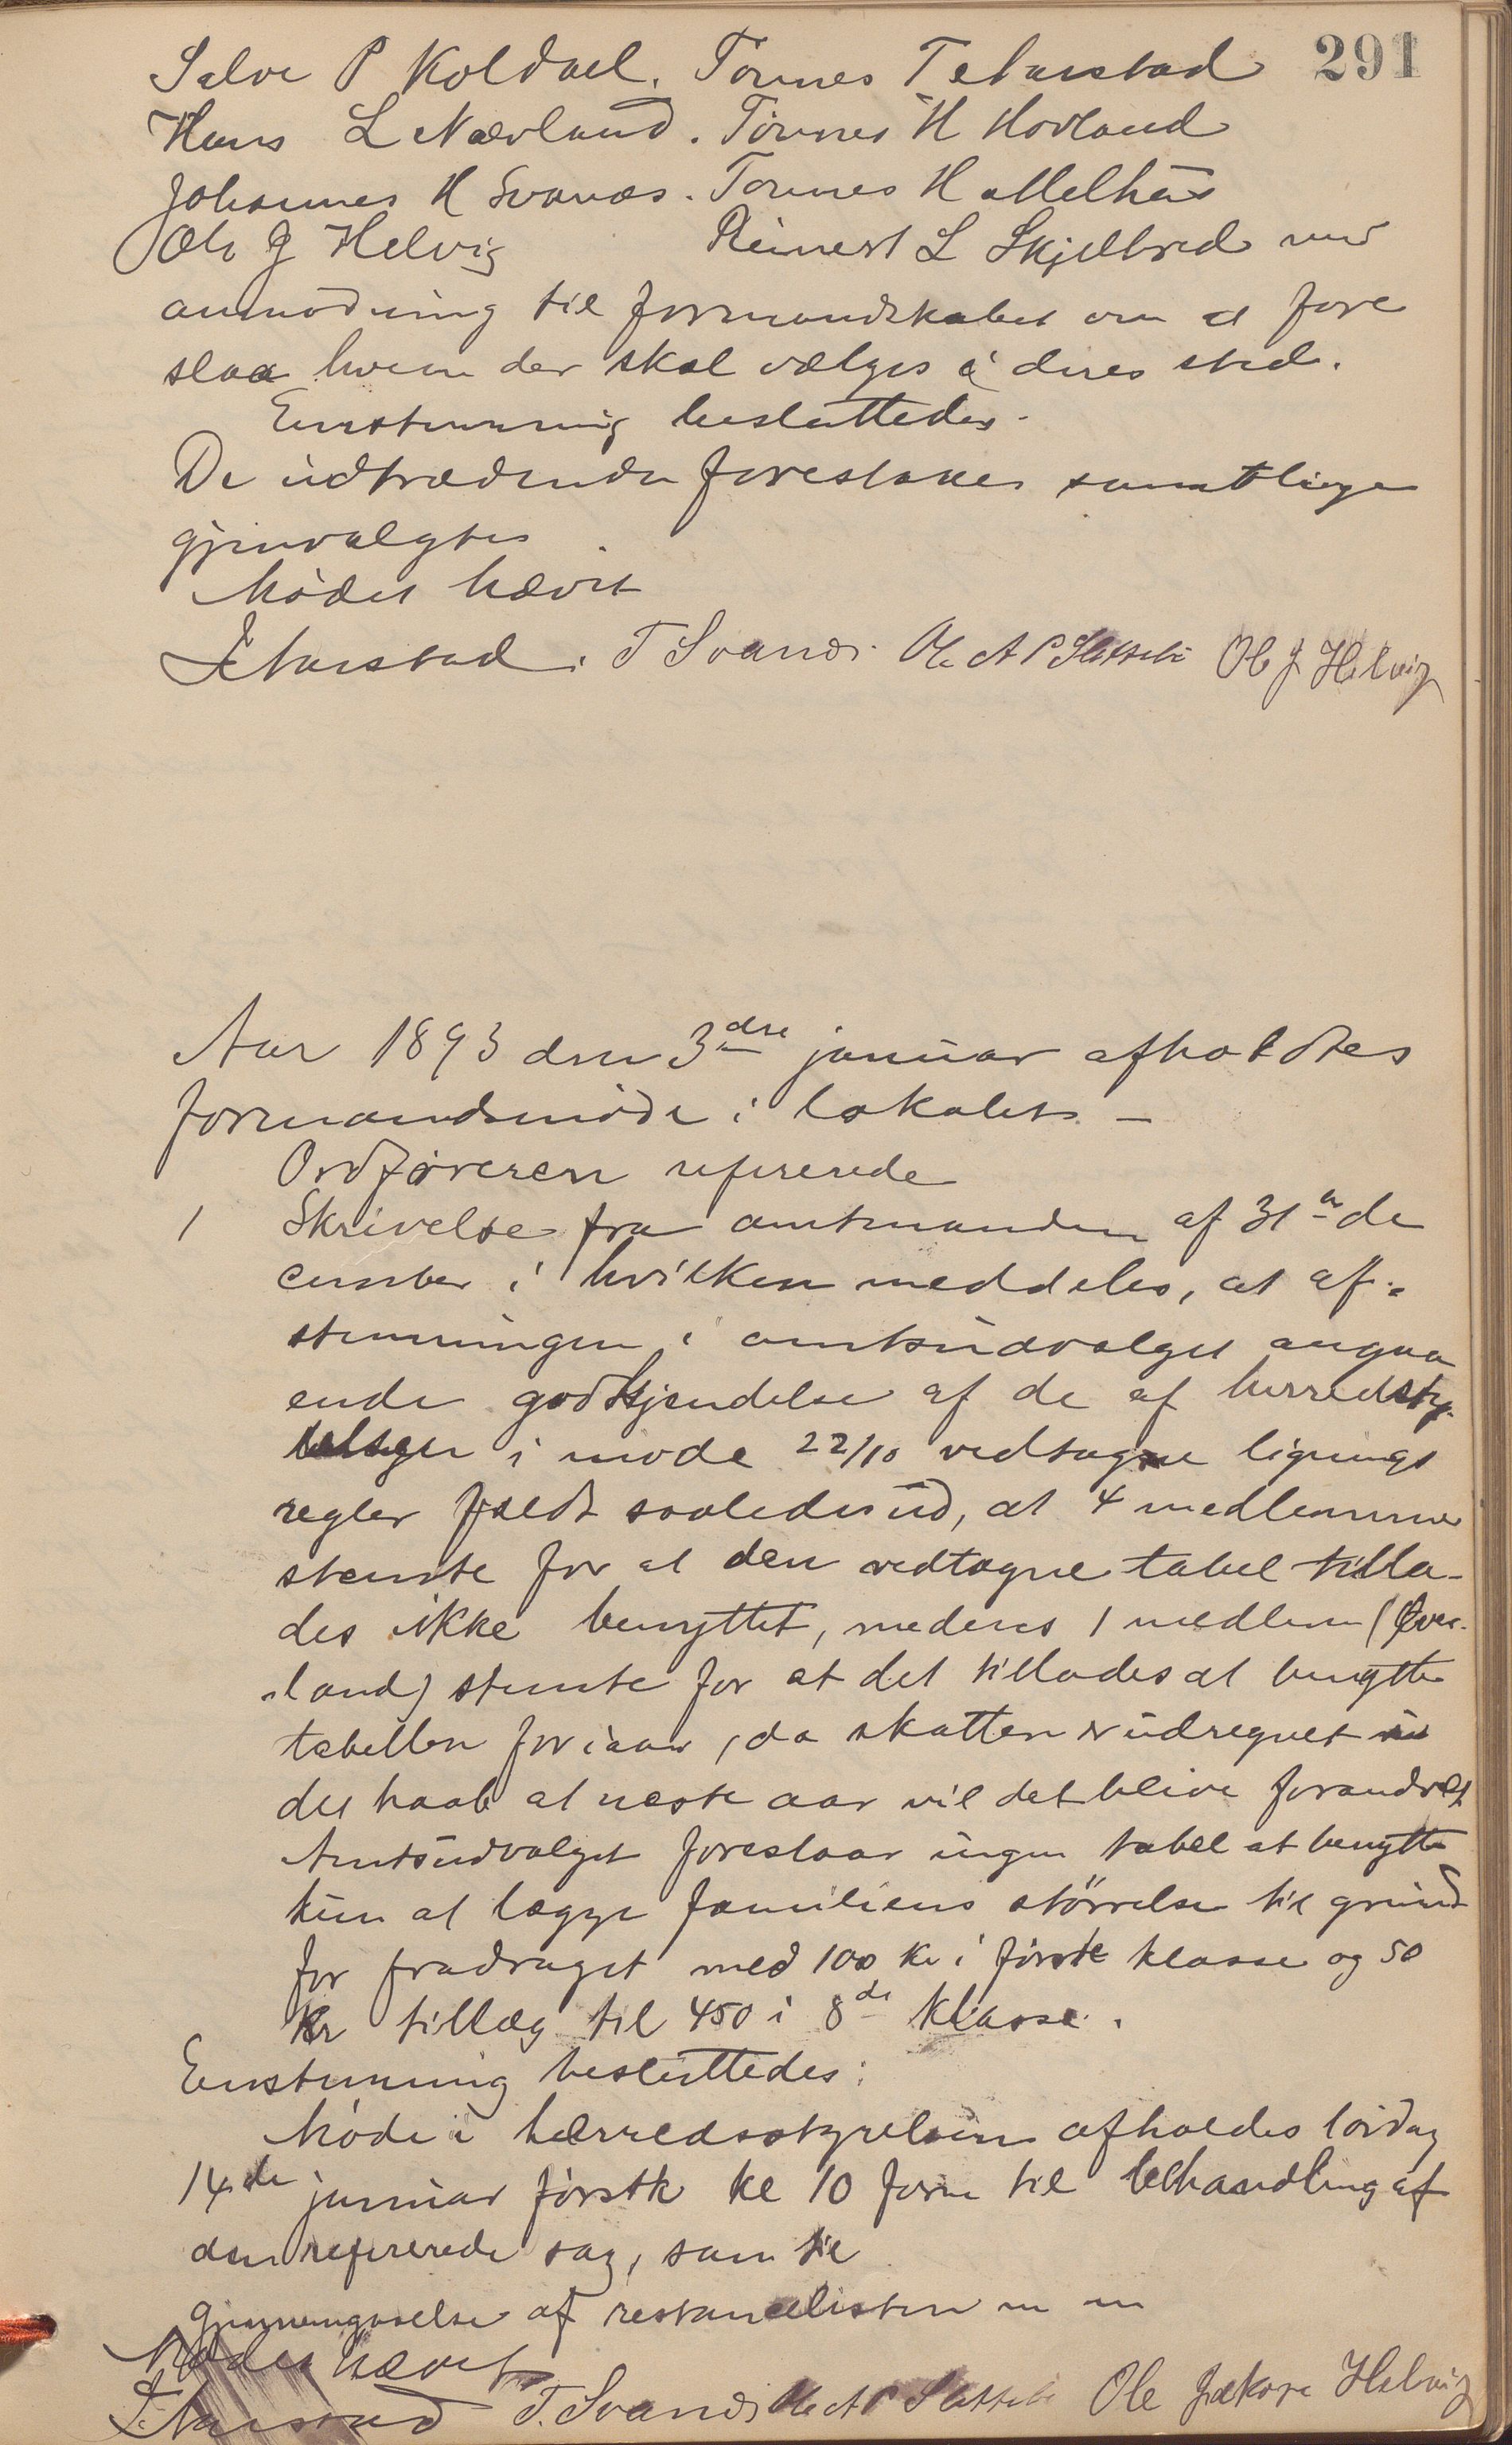 291
Salve P Koldal. Tønnes T Aarstad
Hans L Nævland. Tønnes H Hovland
Johannes H Svanæs. Tønnes H Melhus
Ole J Helvig Reinert L Skjelbred med
anmodning til formandskabet om at fore
slaa hvem der skal vælges i deres sted.
Enstemmig besluttedes.
De udtrædende foreslaaes samtlige
gjenvalgtes
Mødet hævet
T Aarstad. T Svanæs. Ole A P Sletteb Ole J Helvig
Aar 1893 den 3dje januar afholdtes
formandsmøde i lokalet. —
Ordføreren refererede
1 Skrivelse fra amtmanden af 31te de
cember i hvilken meddeles, at af-
stemningen i amtsudvalget angaa
ende godkjendelse af de af herredsty-
relsen i møde 22/10 vedtagne lignings
regler faldt saaledes ud, at 4 medlemmer
stemte for at den vedtagne tabel tilla-
des ikke benyttet, medens 1 medlem (Øver-
land) stemte for at det tillades at benytte
tabellen for iaar, da skatten er udregnet i
det haab at næste aar vil det blive forandret
Amtsudvalget foreslaar ingen tabel at benytte
kun at lægge familiens størrelse til grund
for fradraget med 100 kr i første klasse og 50
kr tillæg til 450 i 8de klasse.
Enstemmig besluttedes:
Møde i herredsstyrelsen afholdes lørdag
14de januar førstk kl 10 form til behandling af
den refererede sag, samt til
gjennemgaaelse af restancelisten m m
Mødet hævet
T Aarstad T. Svanæs Ole A P Sletteb Ole Jakob Helvig